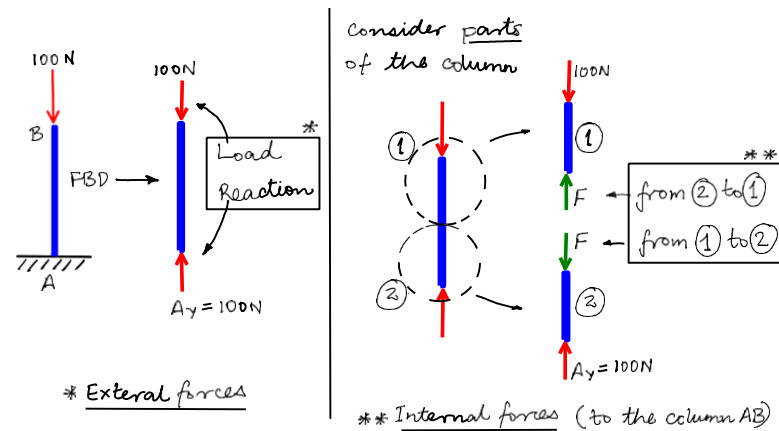 100N
B
FBD
A
100N
*
Load
Reaction
Ay=100N
* Exteral forces
Consider parts
of the column
1
2
100N
1
F
* *
from 2 to 1
F
from 1 to 2
2
Ay=100N
** Internal forces (to the column AB)